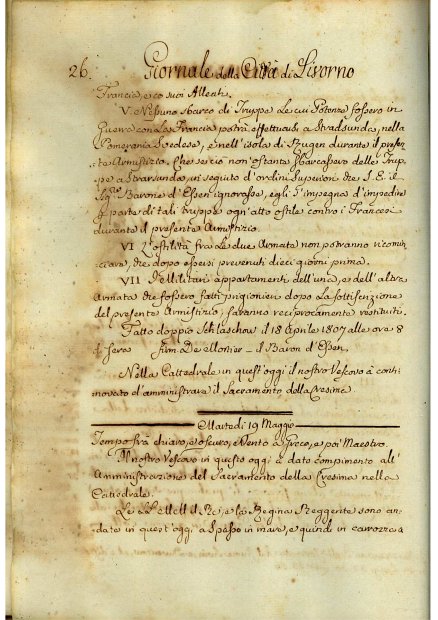 26. Giornale della Città di Livorno
Francia, e co suoi Alleati.
V. Nessuno sbarco di Truppe le cui Potenze fossero in
Guerra con La Francia potrà effettuarsi a Stralsunda, nella
Pomerania Svedese, e nell'isola di Rugen durante il presen-
te Armistizio. Che se ciò non ostante sbarcassero delle Trup-
pe a Stralsunda, in seguito d'ordini Superiori che S. E. il
Sig.re Barone d'Essen ignorasse, egli s'impegna d'impedire
a parte di tali truppe ogn'atto ostile contro i Francesi
durante il presente Armistizio.
VI L'ostilità fra Le due Armate non potranno ricomin-
ciare, che dopo essersi prevenuti dieci giorni prima.
VII I Militari appartenenti dell'una, e dell'altra
Armata che fossero fatti prigionieri dopo La sottiscrizione
del presente Armistizio, saranno reciprocamente restituiti.
Fatto doppio Schlatschow il 18 Aprile 1807 alle ore 8
di sera firm. il Baron d'Essen.
Nella Cattedrale in quest'oggi il nostro Vescovo à conti-
novato d'amministrare il Sacramento della Cresima.
Martedì 19 Maggio
Tempo frà chiaro, e oscuro, e Vento a Greco, e poi Maestro.
Il nostro Vescovo in questo oggi à dato compimento all'
Amministrazione del Sacramento della Cresima nella
Cattedrale.
Le LL. MM. il Re, e la Regina Reggente sono an-
date in quest'oggi a Spasso in mare, e quindi in carrozza a